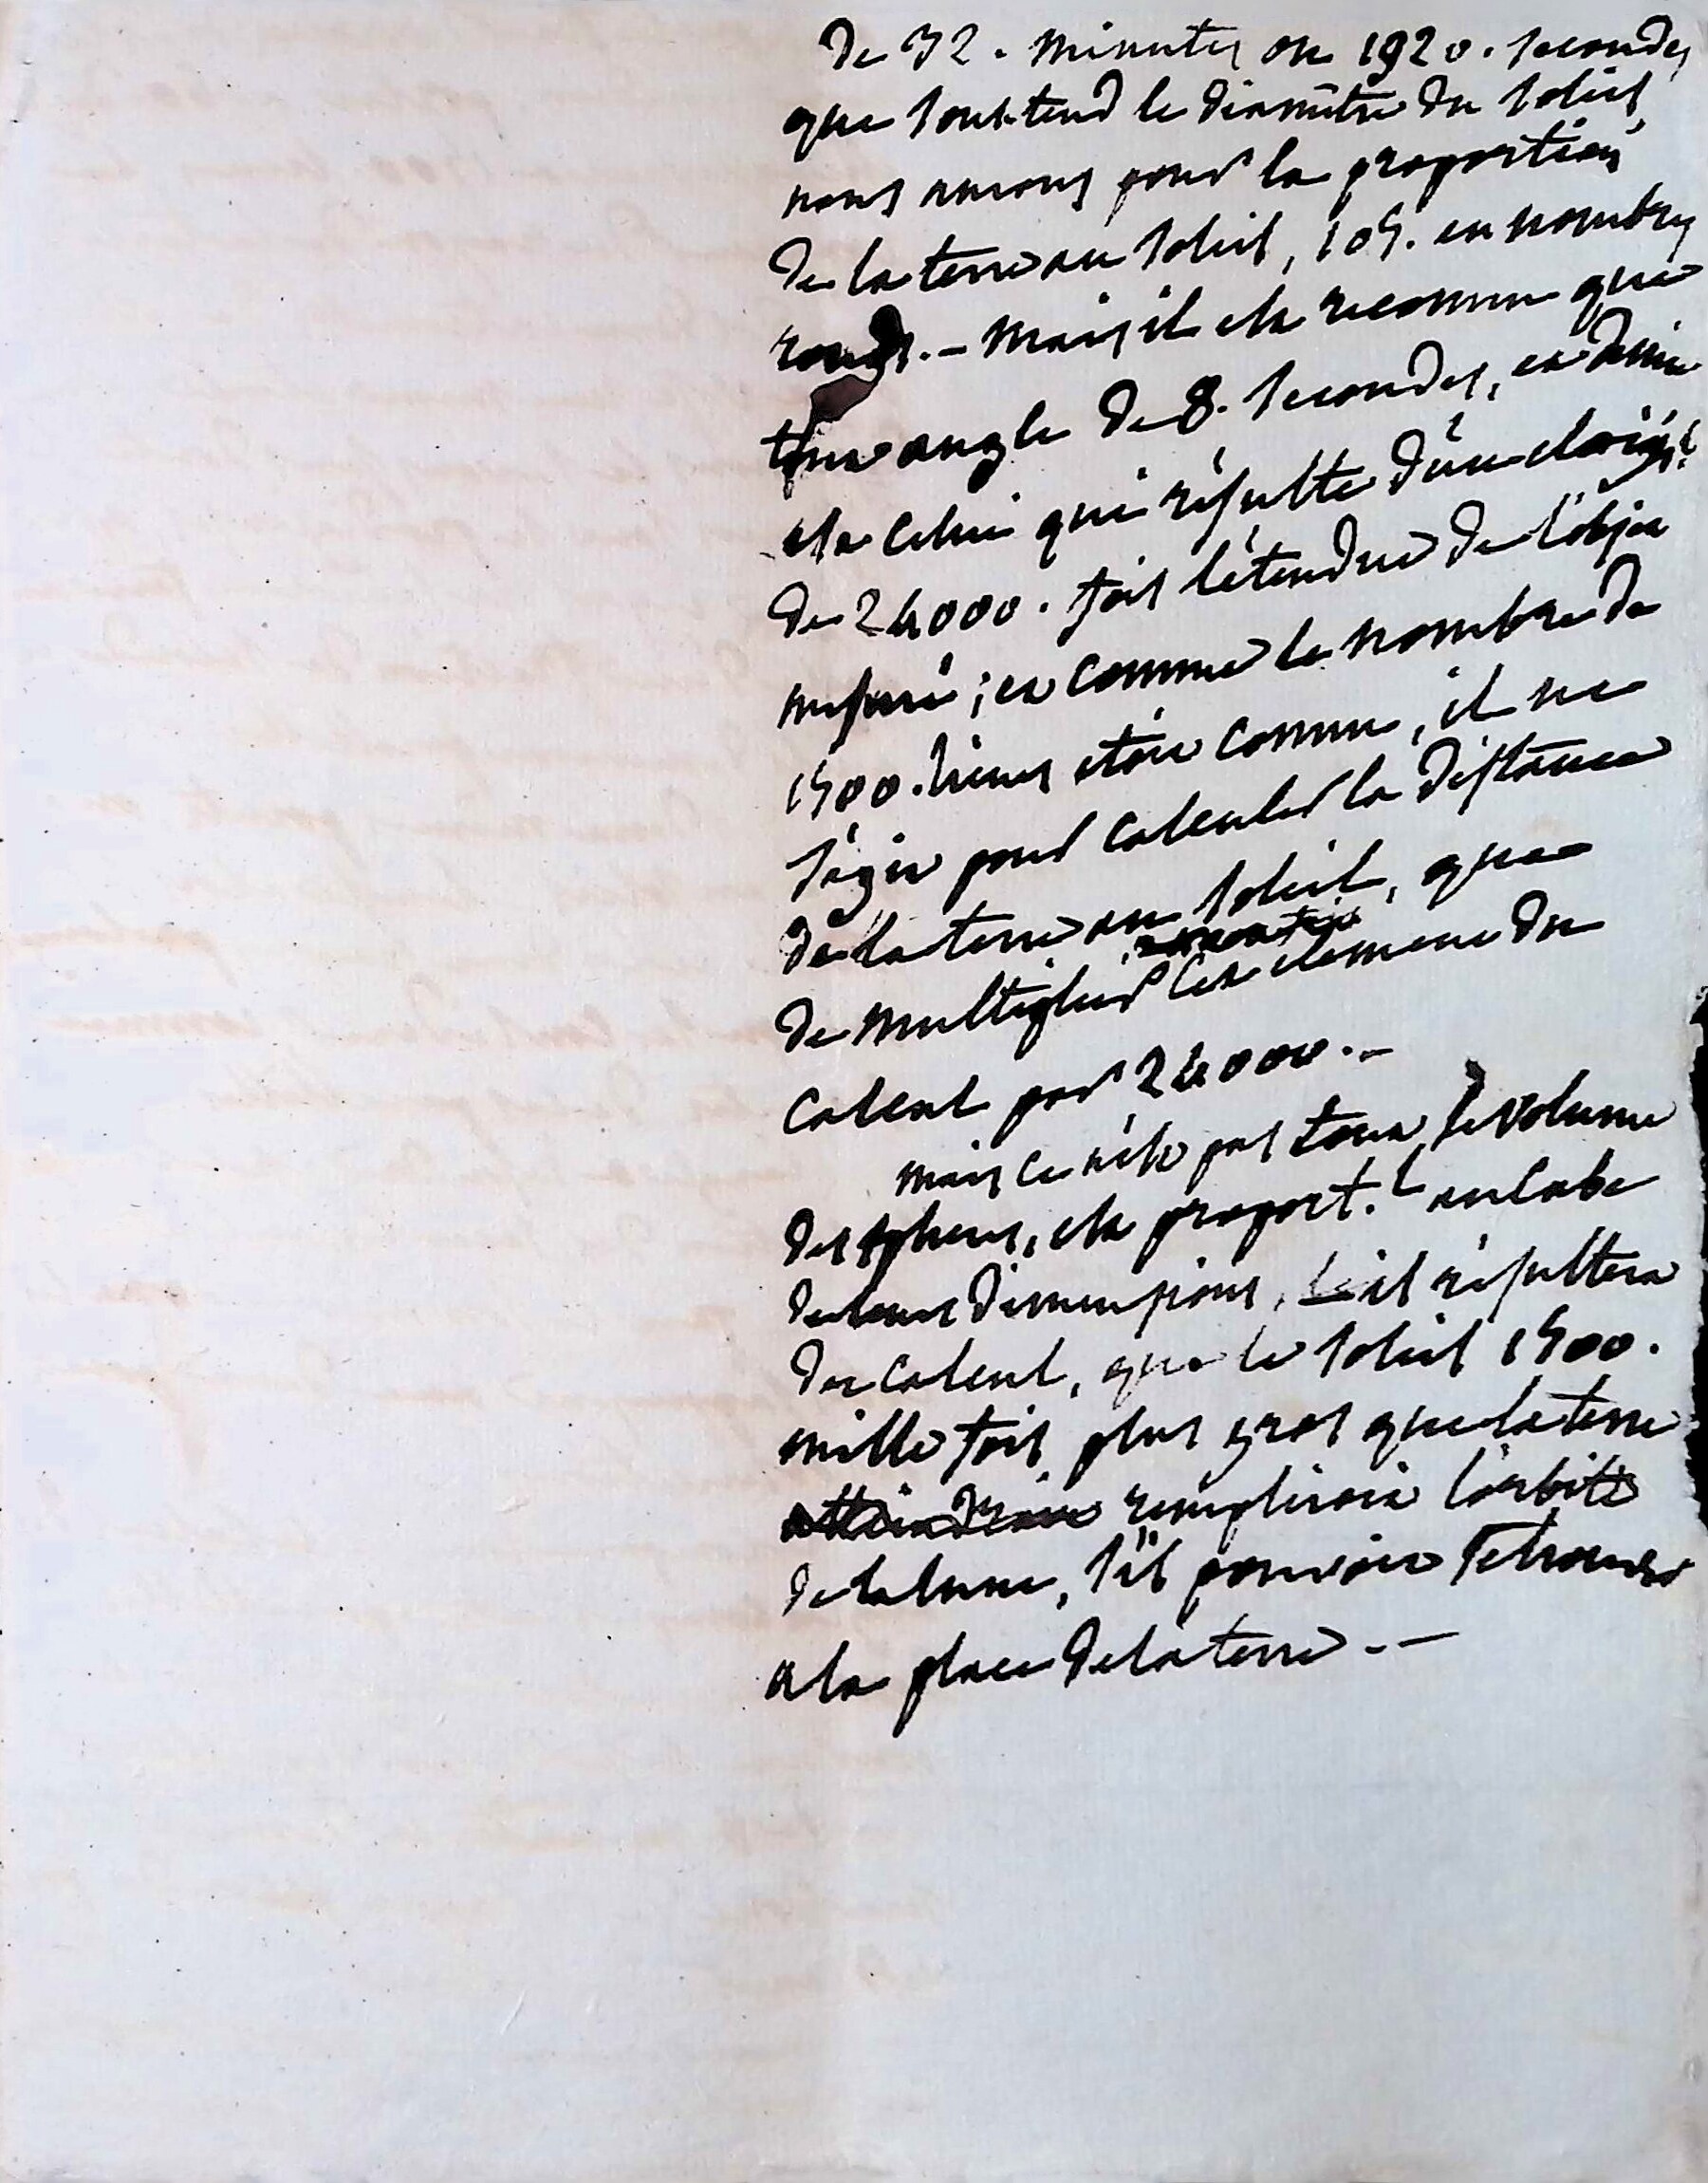 de 32. minutes ou 1920. secondes
que sous-tend le diamêtre du soleil,
nous aurons pour la proportion
de la terre au soleil, 105. en nombres
ronds. _ mais il est reconnu que
tout angle de 8. secondes, et demie
est celui qui résulte d'un eloigt.
de 24000. fois l'étendue de l'objet
mesuré ; et comme le nombre de
1500. lieues etoit connu, il ne
s'agit pour calculer la distance
de la terre au soleil, que
de multiplier cet element du
calcul par 24000. _
mais ce n'est pas tout, le volume
des spheres, est proport.l au cube
de leurs dimensions, il résultera
du calcul, que le soleil 1500.
mille fois plus gros que la terre
attaindroit rempliroit l'orbite
de la lune, s'il pouvoit se trouver
a la place de la terre. _